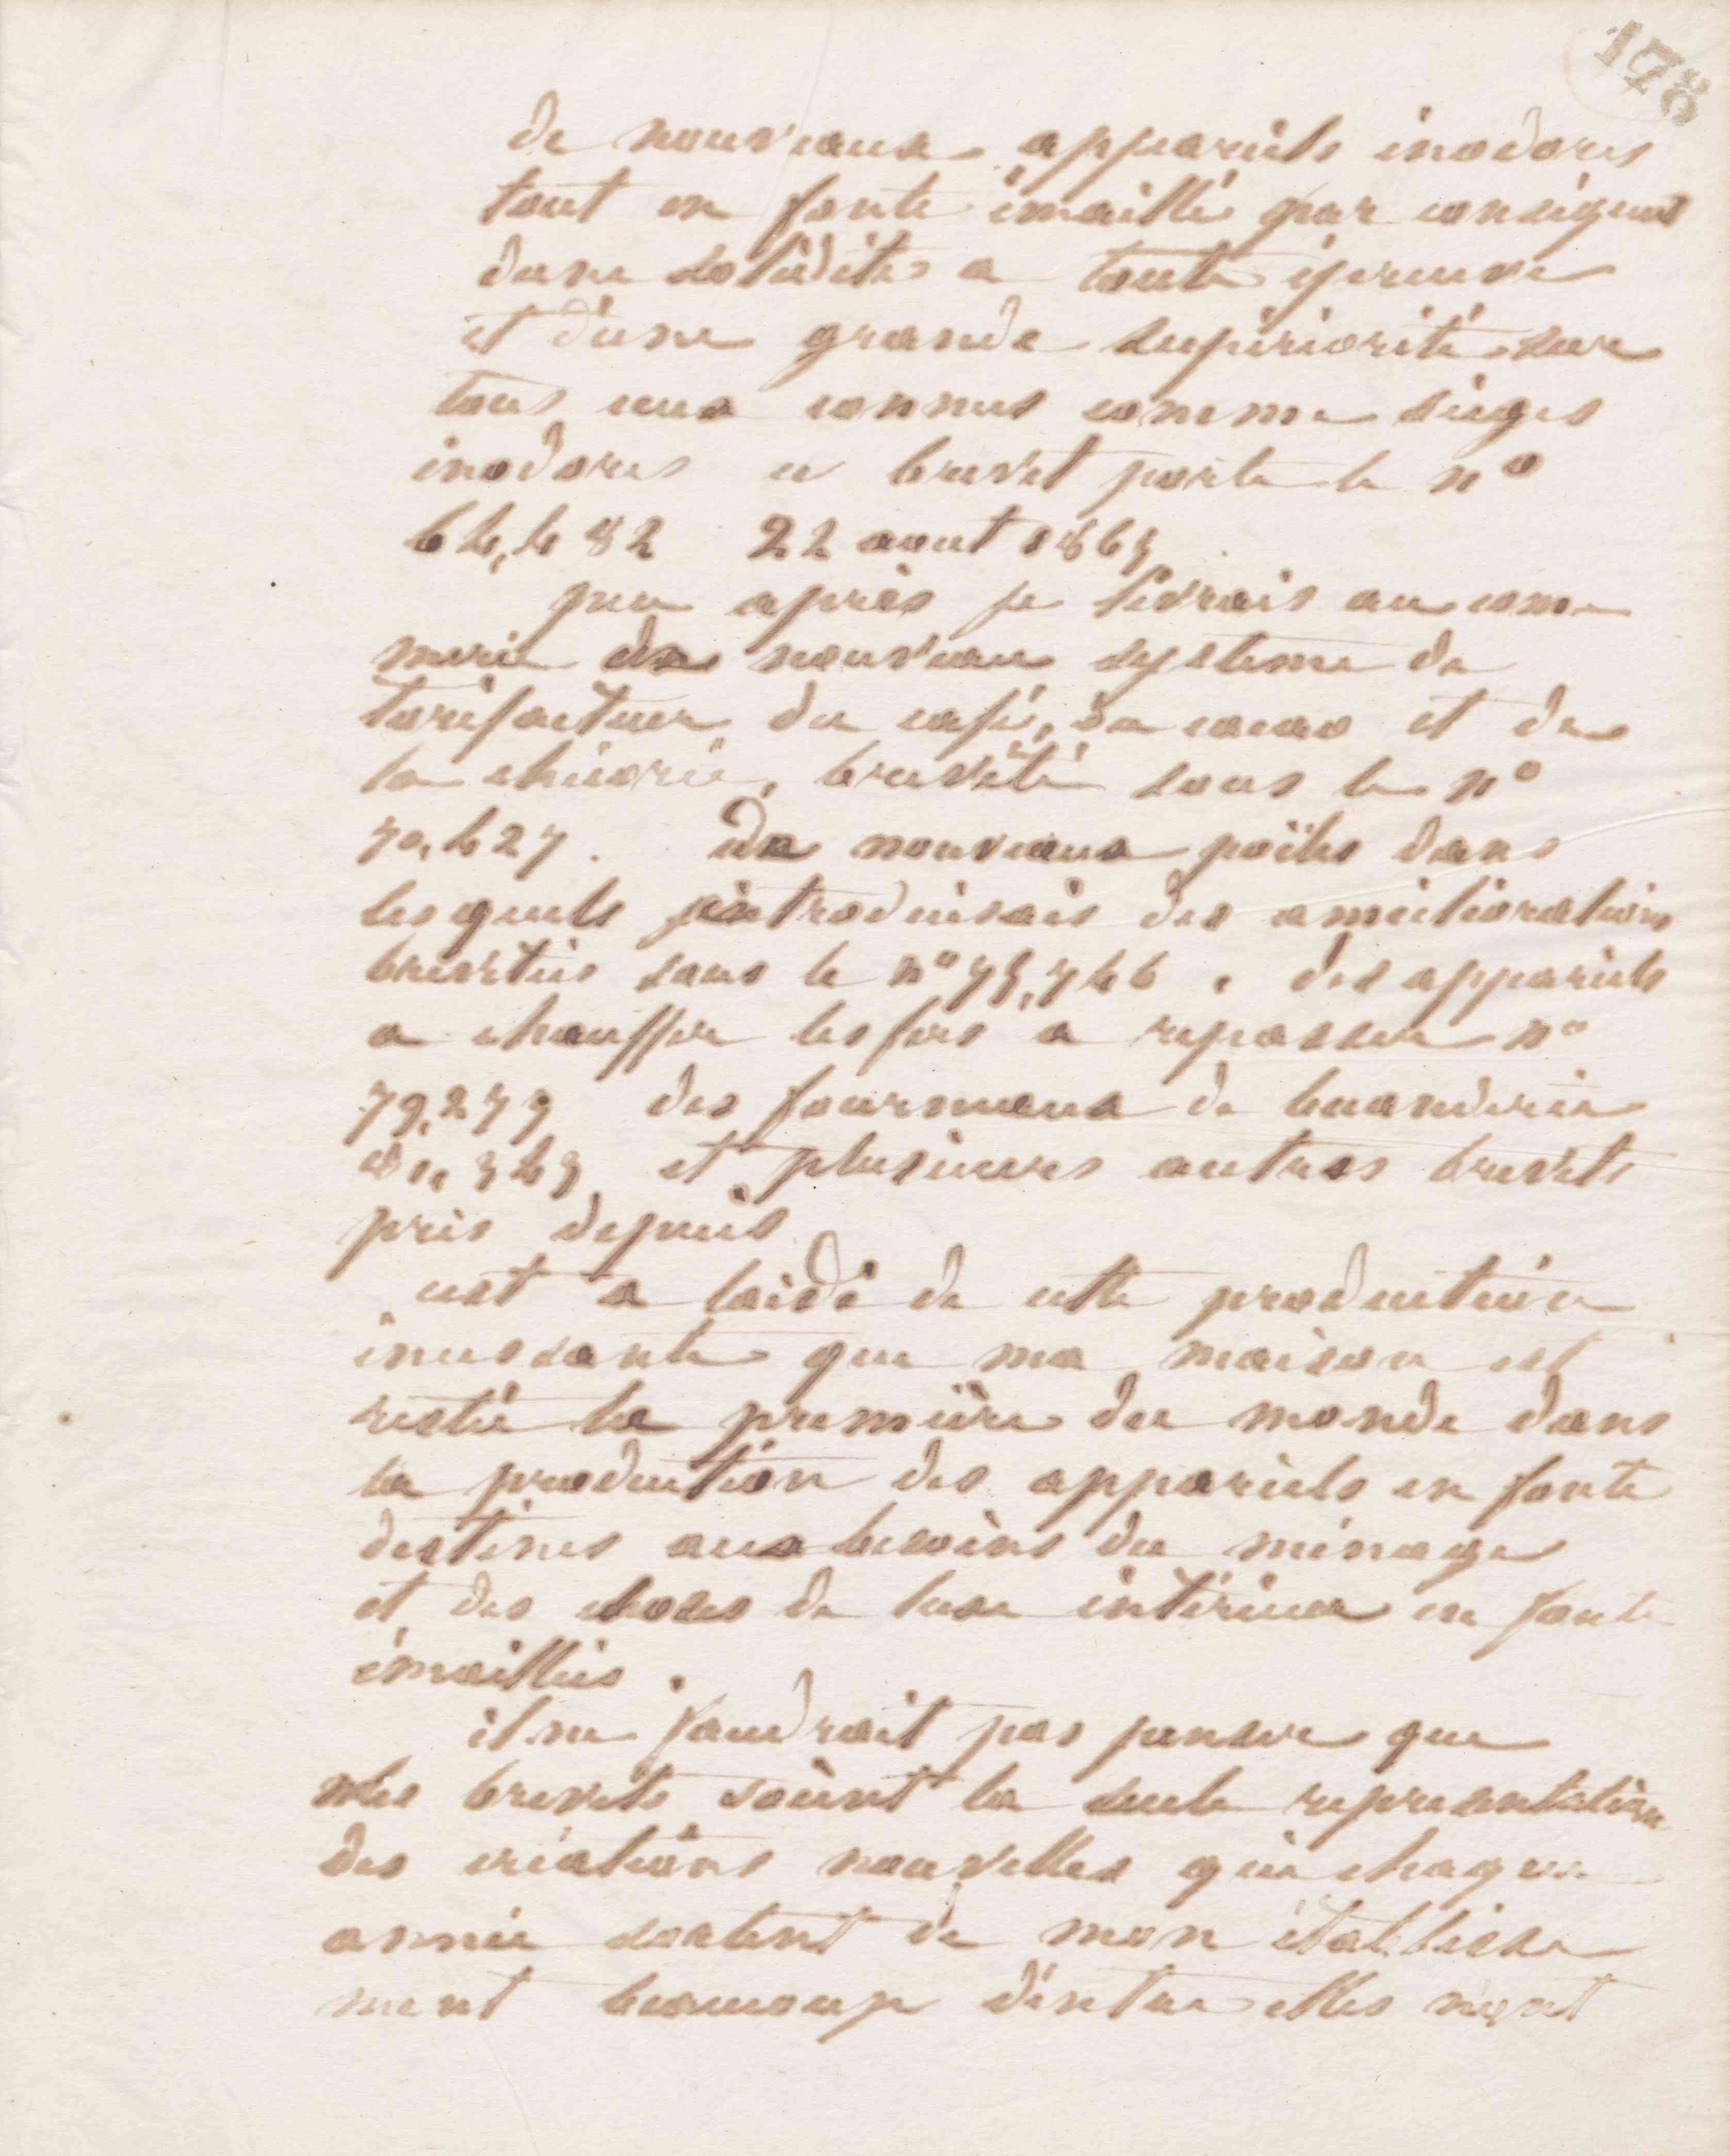 178
de nouveaux appareils inodores
tout en fonte émaillé par conséquent
dune solidités a toute épreuve
et d'une grande supériorité sur
tous ceux connus comme sièges
inodores ce brevet porte le n°
64,482 22 aout 1864
peu après je livrais au com
merce de nouveau systeme de
torifacteur du café, du cacao et de
la chicorié, breveté sous le n°
70,427. de nouveaux poëles dans
les quels j'introduisais des améliorations
brevetées sous le n° 75,746, des appareils
a chauffer les fers a repasser n°
79,279 des fourneaux de buanderie
et plusieurs autres brevets
pris depuis
cest a laide de cette production
incessante que ma maison est
restée la première du monde dans
la production des appareils en fonte
destines aux besoins du ménage
et des choses de luxe intérieur en fonte
émaillées.
il ne faudrait pas penser que
les brevets soient la seule representation
des créations nouvelles qui chaque
année sortent de mon établisse
ment beaucoup d'entre elles n'ont